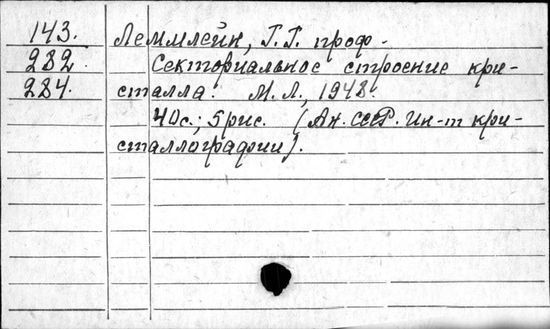 143. Леммлейн, Г.Г. проф.
282. Секториальное строение кри-
284. сталла. М. Л., 1948.
40с.; 5рис. (Ак. СССР. Ин-т кри-
сталлографии).